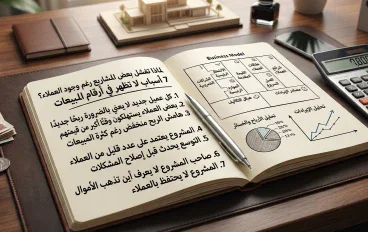 لماذا تفشل بعض المشاريع رغم وجود العملاء؟
7 أسباب لا تظهر في أرقام المبيعات
1. كل عميل جديد لا يعني بالضرورة ربحًا جديدًا
2. بعض العملاء يستهلكون وقتًا أكبر من قيمتهم
3. هامش الربح منخفض رغم كثرة المبيعات
4. المشروع يعتمد على عدد قليل من العملاء
5. التوسع يحدث قبل إصلاح المشكلات
6. صاحب المشروع لا يعرف أين تذهب الأموال
7. المشروع لا يحتفظ بالعملاء
Business Model
تحليل الإيرادات
تحليل الربح والخسائر